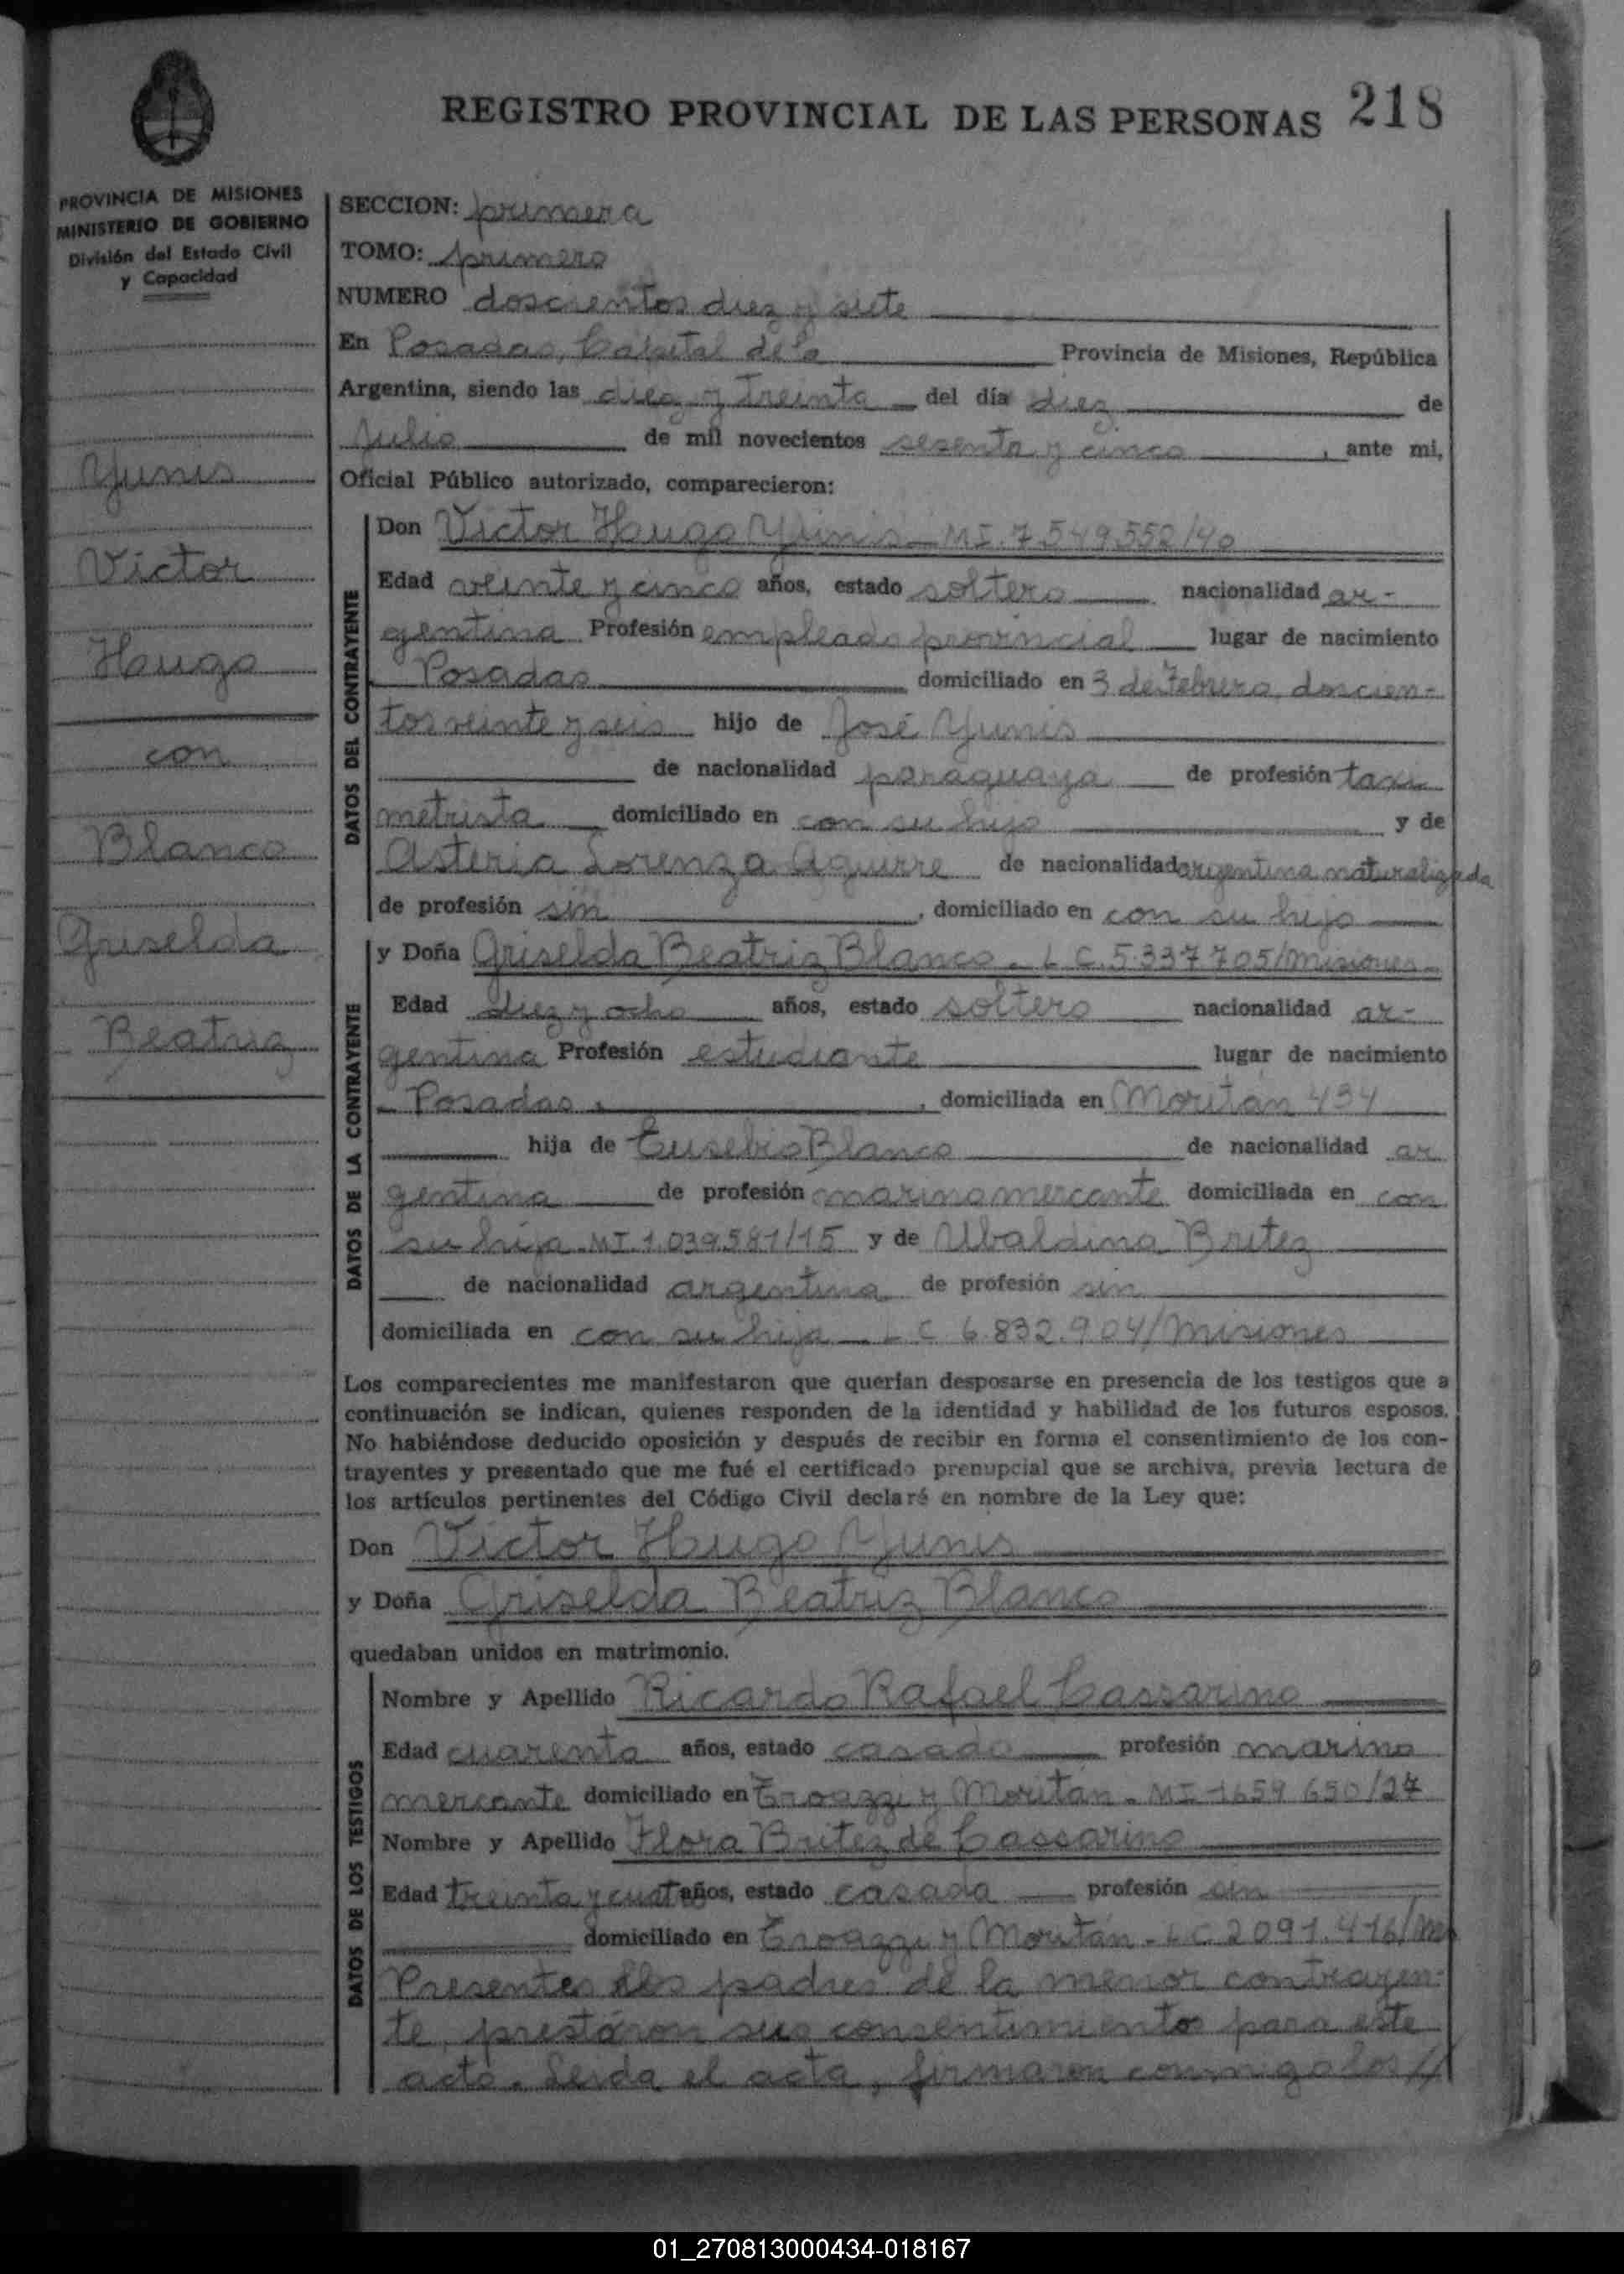 REGISTRO PROVINCIAL DE LAS PERSONAS 218
PROVINCIA DE MISIONES
MINISTERIO DE GOBIERNO
División del Estado Civil
y Capacidad
Yunis
Victor
Hugo
con
Blanco
Griselda
Beatriz
SECCION: primera
TOMO: primero
NUMERO doscientos diez y siete
En Posadas, Capital de la Provincia de Misiones, República
Argentina, siendo las diez y treinta del día diez de
Julio de mil novecientos sesenta y cinco, ante mi,
Oficial Público autorizado, comparecieron:
DATOS DEL CONTRAYENTE
Don Victor Hugo Yunis - MI. 7.549.552/40
Edad veinte y cinco años, estado soltero nacionalidad ar-
gentina Profesión empleado provincial lugar de nacimiento
Posadas domiciliado en 3 de Febrero, doscien-
tos veinte y seis hijo de José Yunis
de nacionalidad paraguaya de profesión taxi
metrista domiciliado en con su hijo y de
Asteria Lorenza Aguirre de nacionalidad argentina naturalizada
de profesión sin, domiciliado en con su hijo
DATOS DE LA CONTRAYENTE
y Doña Griselda Beatriz Blanco - L C. 5.337.705/Misiones-
Edad diez y ocho años, estado soltero nacionalidad ar-
gentina Profesión estudiante lugar de nacimiento
Posadas, domiciliada en Moritán 434
hija de Eusebio Blanco de nacionalidad ar
gentina de profesión marino mercante domiciliada en con
su hija - MI. 1.039.581/15 y de Ubaldina Britez
de nacionalidad argentina de profesión sin
domiciliada en con su hija - L C 6.832.904/Misiones
Los comparecientes me manifestaron que querían desposarse en presencia de los testigos que a
continuación se indican, quienes responden de la identidad y habilidad de los futuros esposos.
No habiéndose deducido oposición y después de recibir en forma el consentimiento de los con-
trayentes y presentado que me fué el certificado prenupcial que se archiva, previa lectura de
los artículos pertinentes del Código Civil declaré en nombre de la Ley que:
Don Victor Hugo Yunis
y Doña Griselda Beatriz Blanco
quedaban unidos en matrimonio.
DATOS DE LOS TESTIGOS
Nombre y Apellido Ricardo Rafael Cassarino
Edad cuarenta años, estado casado profesión marino
mercante domiciliado en y Moritán - MI 1659 650/27
Nombre y Apellido Flora Britez de Cassarino
Edad treinta y cuat años, estado casada profesión sin
domiciliado en y Moritán - L C 2091.416/Mis
Presentes los padres de la menor contrayen-
te, prestaron sus consentimientos para este
acto. Leida el acta, firmaron conmigo los //
01_270813000434-018167